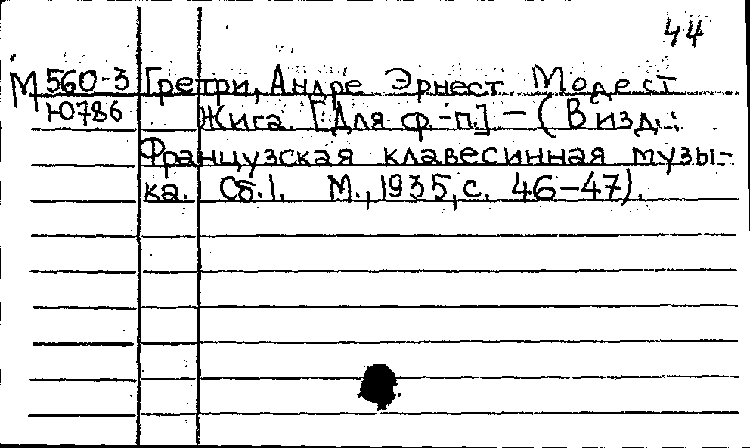 44
М 560-3 Гретри, Андре Эрнест Модест
Ю786 Жига. [Для ф.-п.] — (В изд.:
Французская клавесинная музы-
ка. Сб.1. М., 1935, с. 46-47).